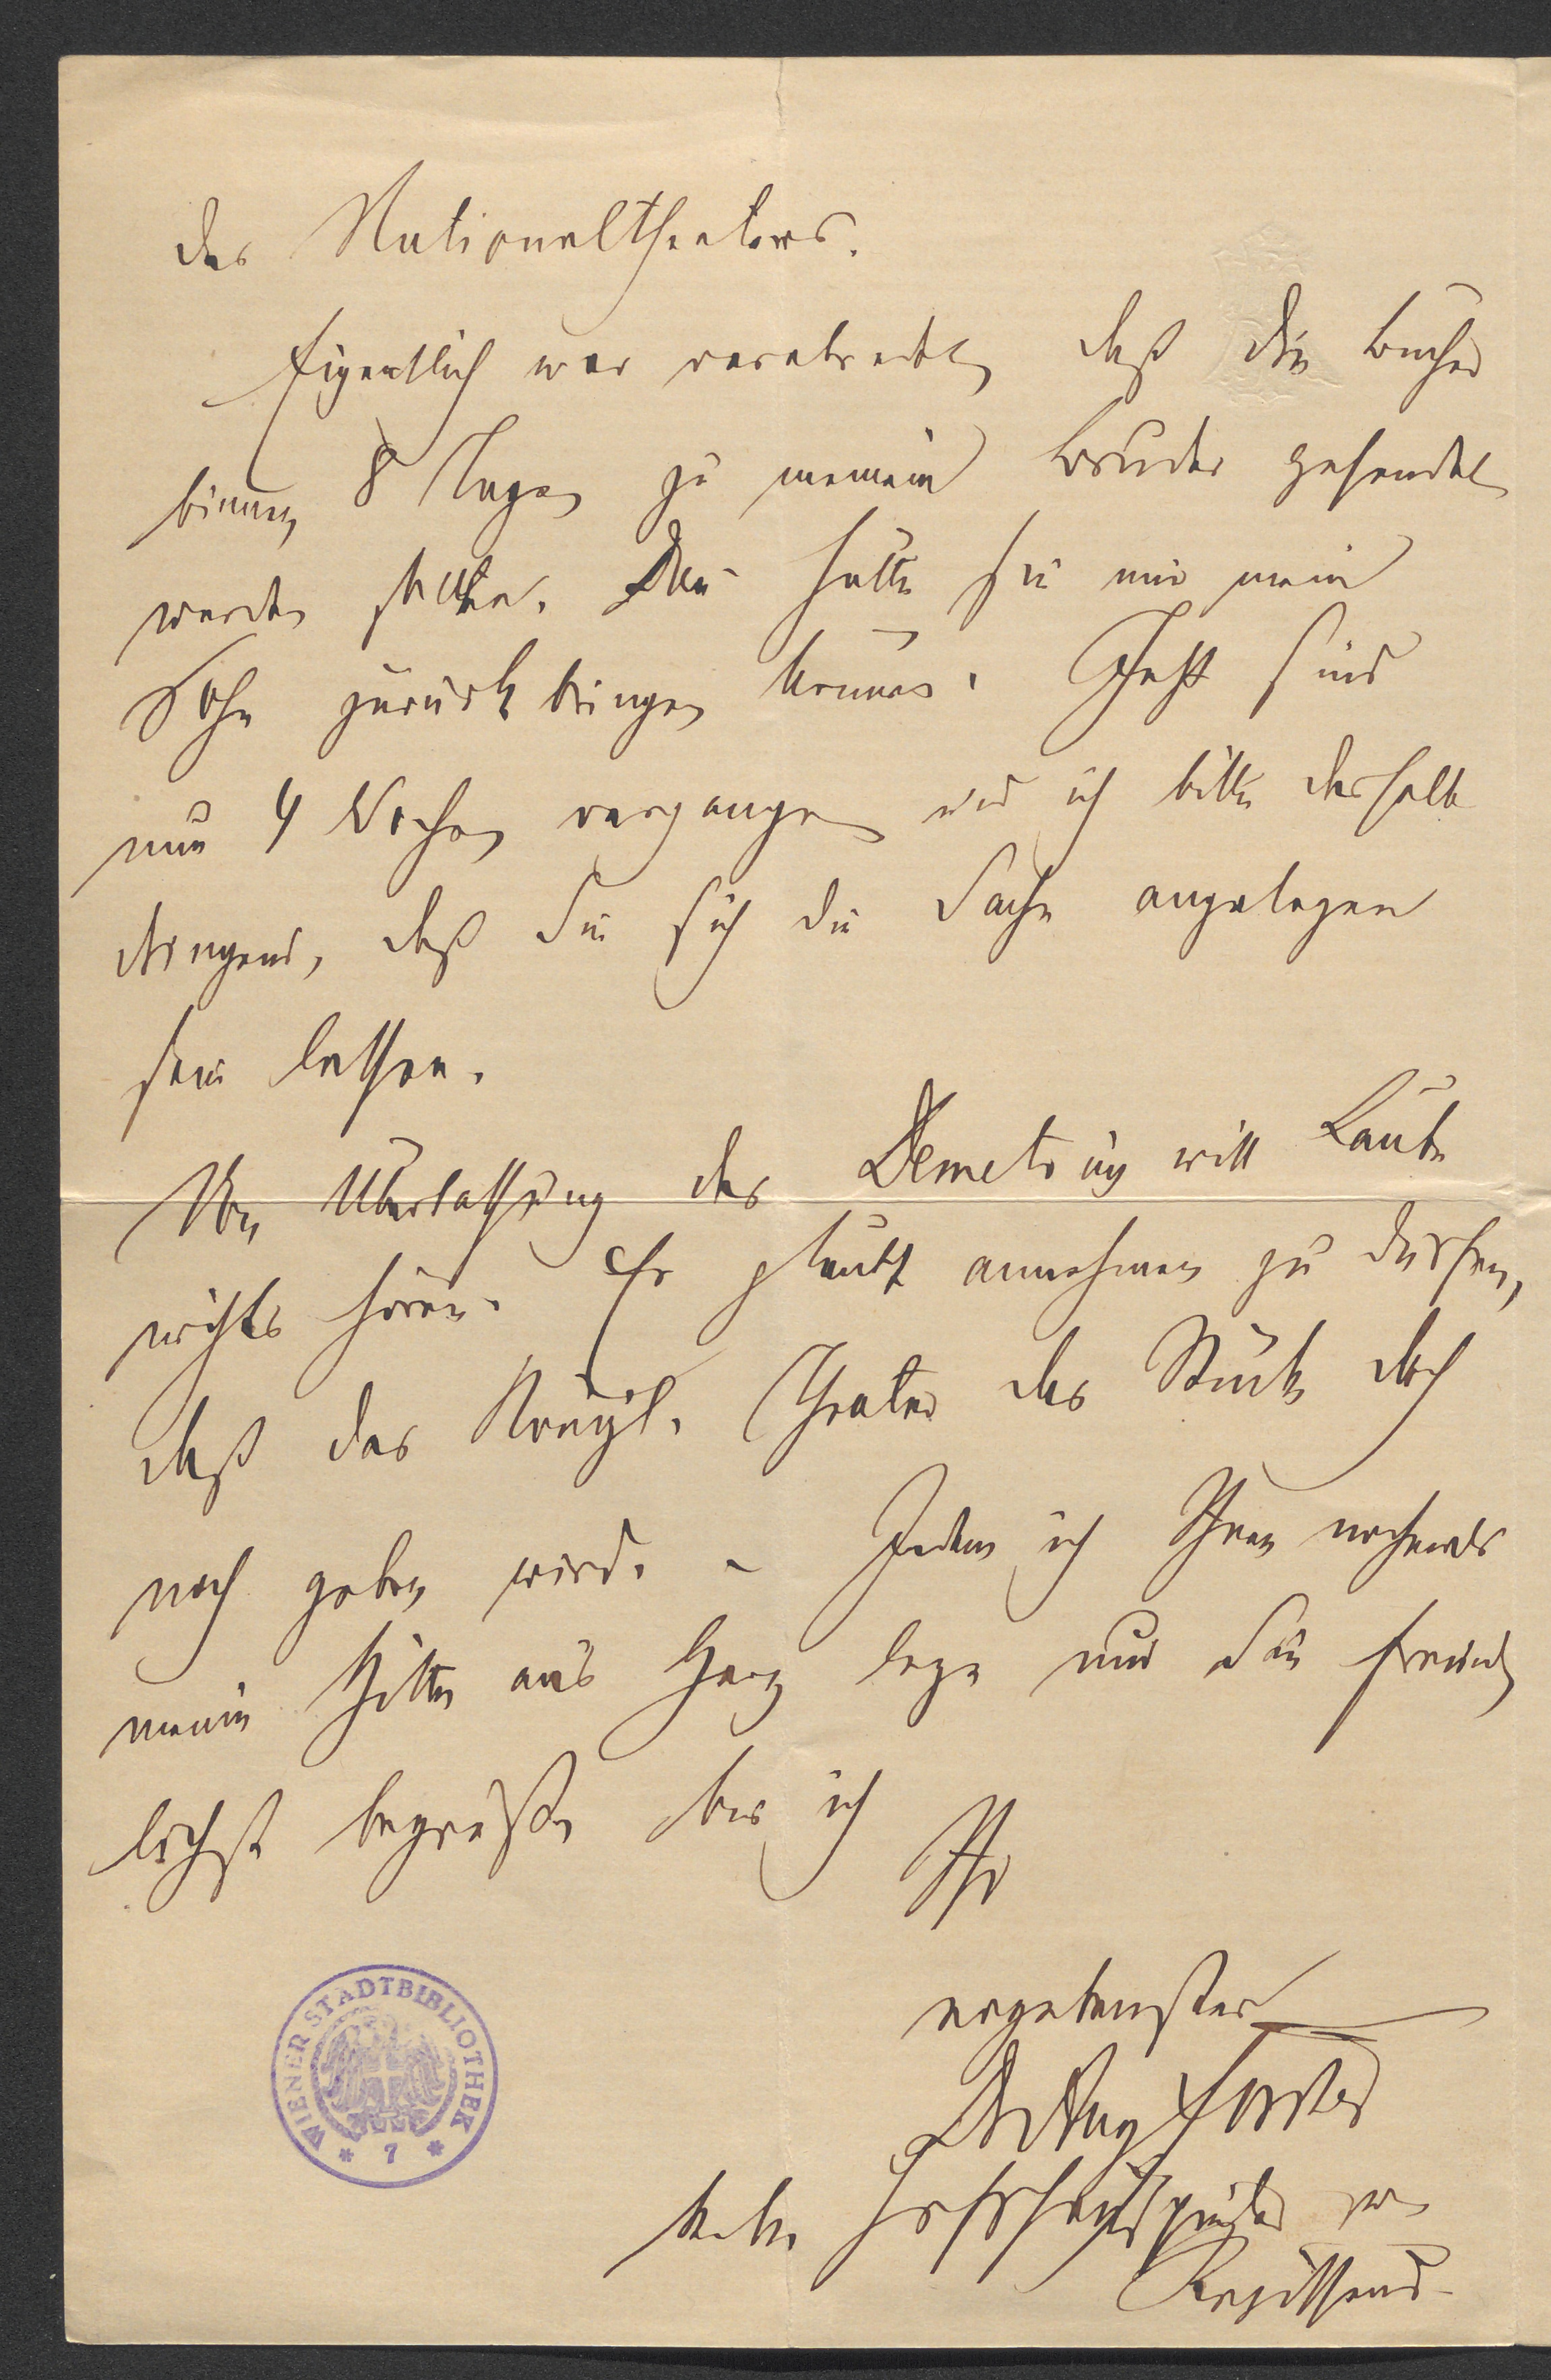 des Nationaltheaters.
Eigentlich war verabredet, daß die Bücher
binnen 8 Tagen zu meinem Bruder gesendet
werden sollten. Dann hätte sie mir mein
Sohn zurückbringen können. Jetzt sind
nun 4 Wochen vergangen und ich bitte deshalb
dringend, daß Sie sich die Sache angelegen
sein lassen.
Von Überlassung des Demetrius will Laube
nichts hören. Er glaubt annehmen zu dürfen,
daß das Königl. Theater das Stück doch
noch geben wird. – Indem ich Ihnen nochmals
meine Bitte ans Herz lege und Sie freund
lichst begrüße bin ich
Ihr
ergebenster
Dr Aug Förster
k. k. Hofschauspieler und
Regisseur
WIENER STADTBIBLIOTHEK
* 7 *